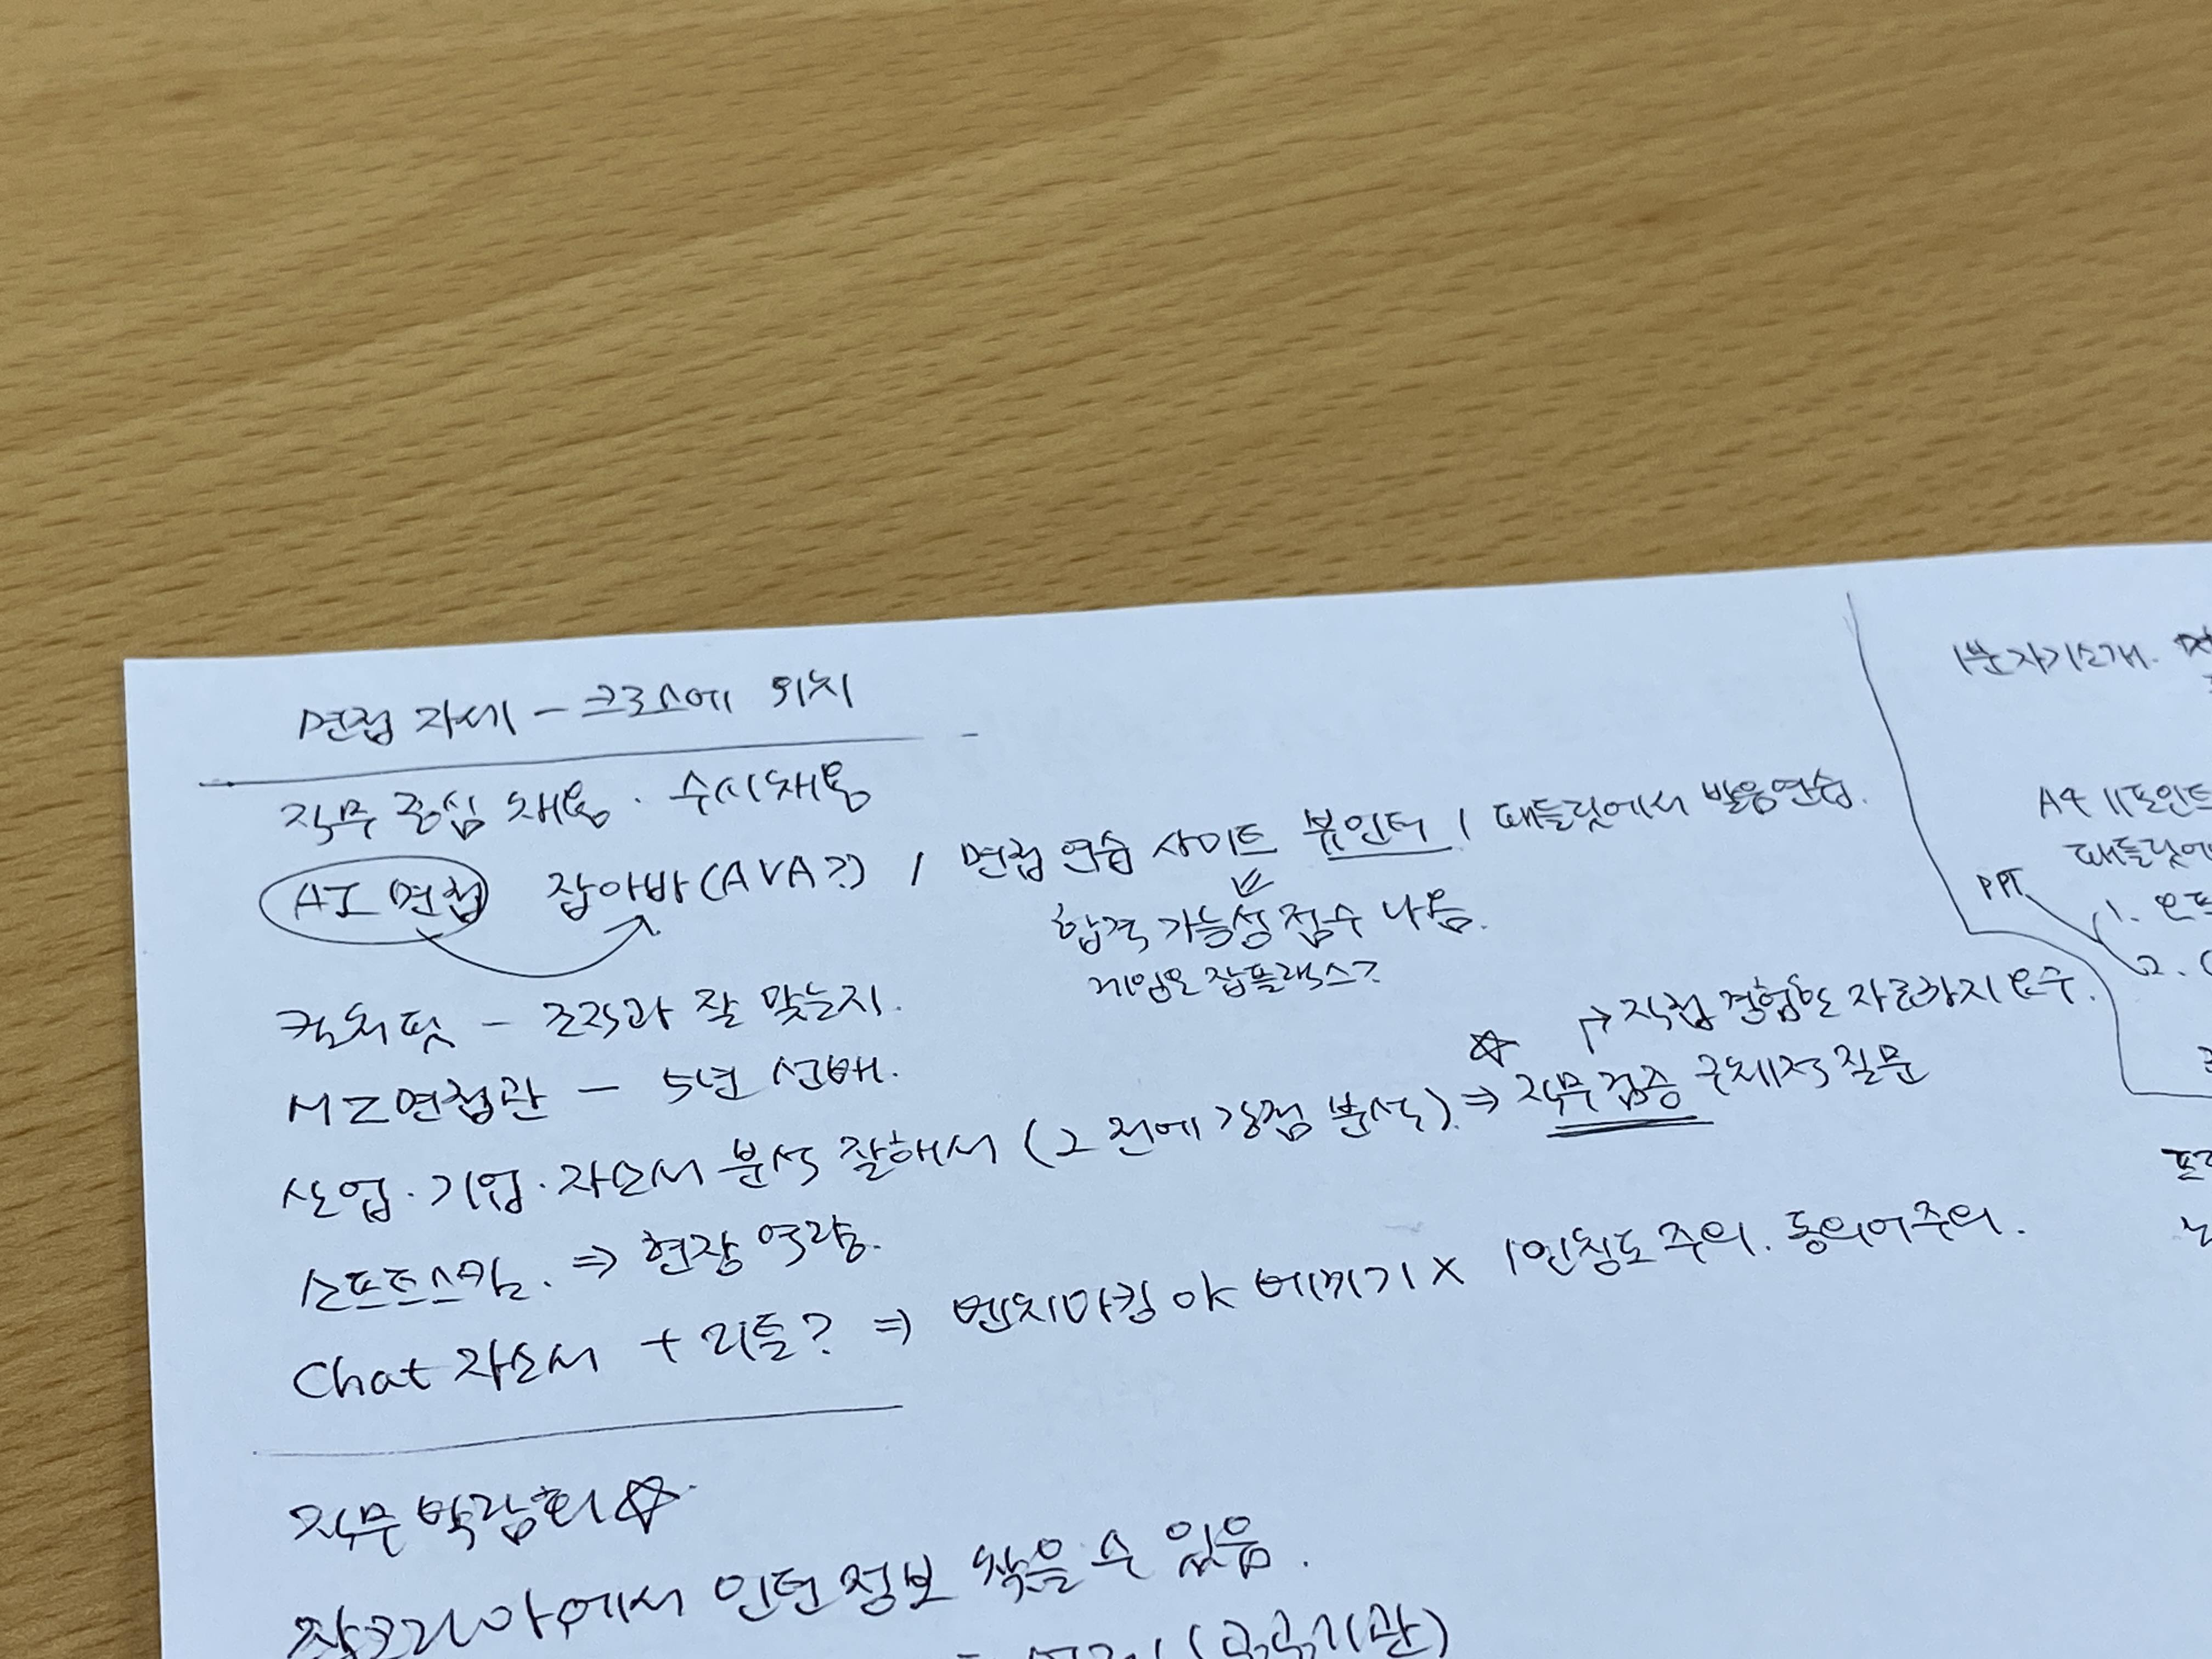 면접 자세 - 크로스에 위치
직무 중심 채용 · 수시채용
AI 면접 잡아바(AVA?) / 면접 연습 사이트 뷰인터 / 패들릿에서 발음연습.
합격 가능성 점수 나옴.
게임은 잡플렉스?
컬처핏 - 조직과 잘 맞는지.
MZ면접관 - 5년 선배.
→ 직접 경험한 자료까지 요구.
산업·기업·자소서 분석 잘해서 (2 전에 강점 분석). ⇒ ☆ 직무검증 구체적 질문
소프트스킬. ⇒ 현장 역량.
Chat 자소서 + 리틀? ⇒ 벤치마킹 OK 베끼기 X 1인칭도 주의. 동의어주의.
직무박람회☆
잡코리아에서 인턴 정보 찾을 수 있음.
(공공기관)
1분 자기소개.
A4 11포인트
패들릿에
PPT
1. 오프
2.